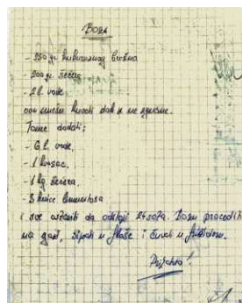 Boza
- 250 gr kukuruznog brašna
- 200 gr šećera
- 2 l. vode.
ovu smešu kuvati dok se ne zgusne.
Tome dodati:
- 6 l. vode,
- 1 kvasac,
- 1 kg šećera,
- 3 kesice limuntosa
i sve ostaviti da odstoji 24 sata. Bozu procediti
na gazu, sipati u flaše i čuvati u frižideru.
Prijatno!